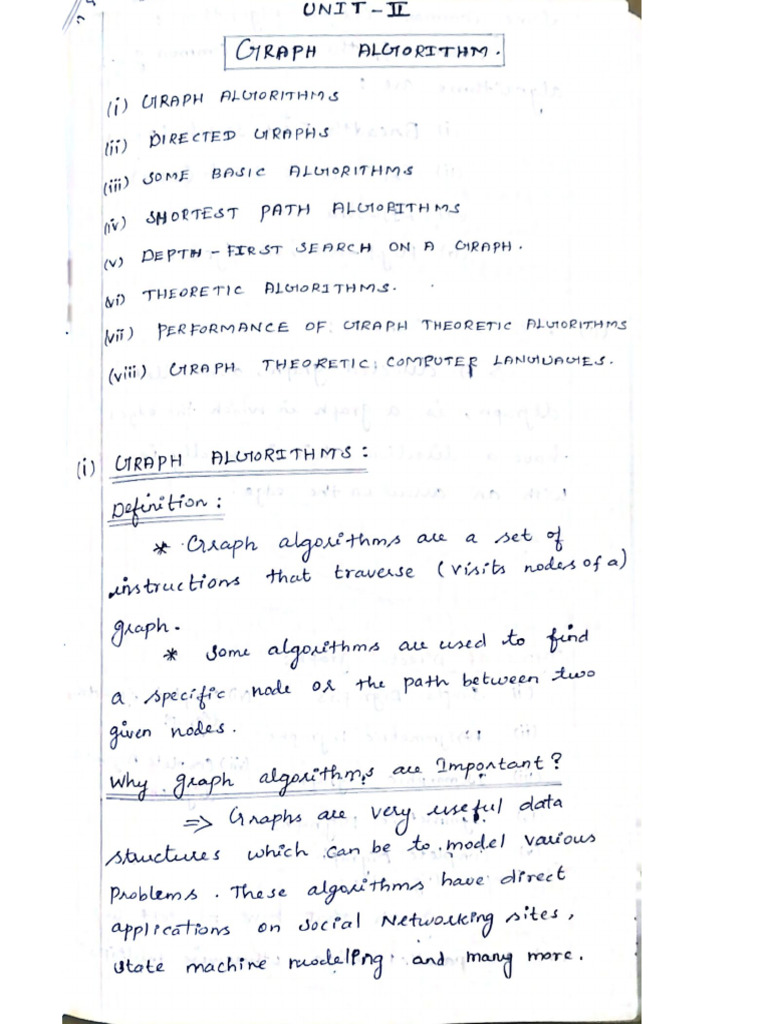 UNIT-II
GRAPH ALGORITHM.
(i) GRAPH ALGORITHMS
(ii) DIRECTED GRAPHS
(iii) SOME BASIC ALGORITHMS
(iv) SHORTEST PATH ALGORITHMS
(v) DEPTH-FIRST SEARCH ON A GRAPH.
(vi) THEORETIC ALGORITHMS.
(vii) PERFORMANCE OF GRAPH THEORETIC ALGORITHMS
(viii) GRAPH THEORETIC COMPUTER LANGUAGES.
(i) GRAPH ALGORITHMS:
Definition:
* Graph algorithms are a set of
instructions that traverse (visits nodes of a)
graph.
* Some algorithms are used to find
a specific node or the path between two
given nodes.
Why graph algorithms are Important?
⇒ Graphs are very useful data
structures which can be to model various
Problems. These algorithms have direct
applications on Social Networking sites,
State machine modeling and many more.